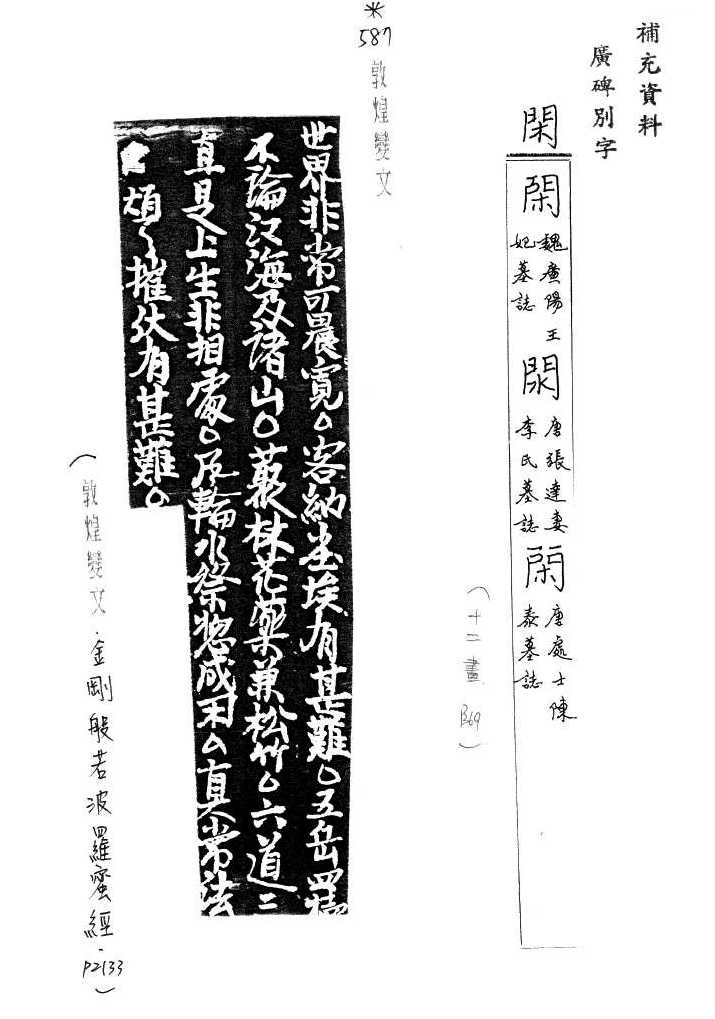 補充資料
廣碑別字
閑
閑 魏廣陽王妃墓誌
閑 唐張達妻李氏墓誌
閑 唐處士陳泰墓誌
(十二畫 B69)
*
587 敦煌變文
世界非常可畏寬。容納塵埃有甚難。五岳
不論江海及諸山。叢林花藥兼松竹。六道二
直是上生非相處。風輪水際惣成末。真常法
煩〻摧伏有甚難。
(敦煌變文.金剛般若波羅蜜經.P2133)